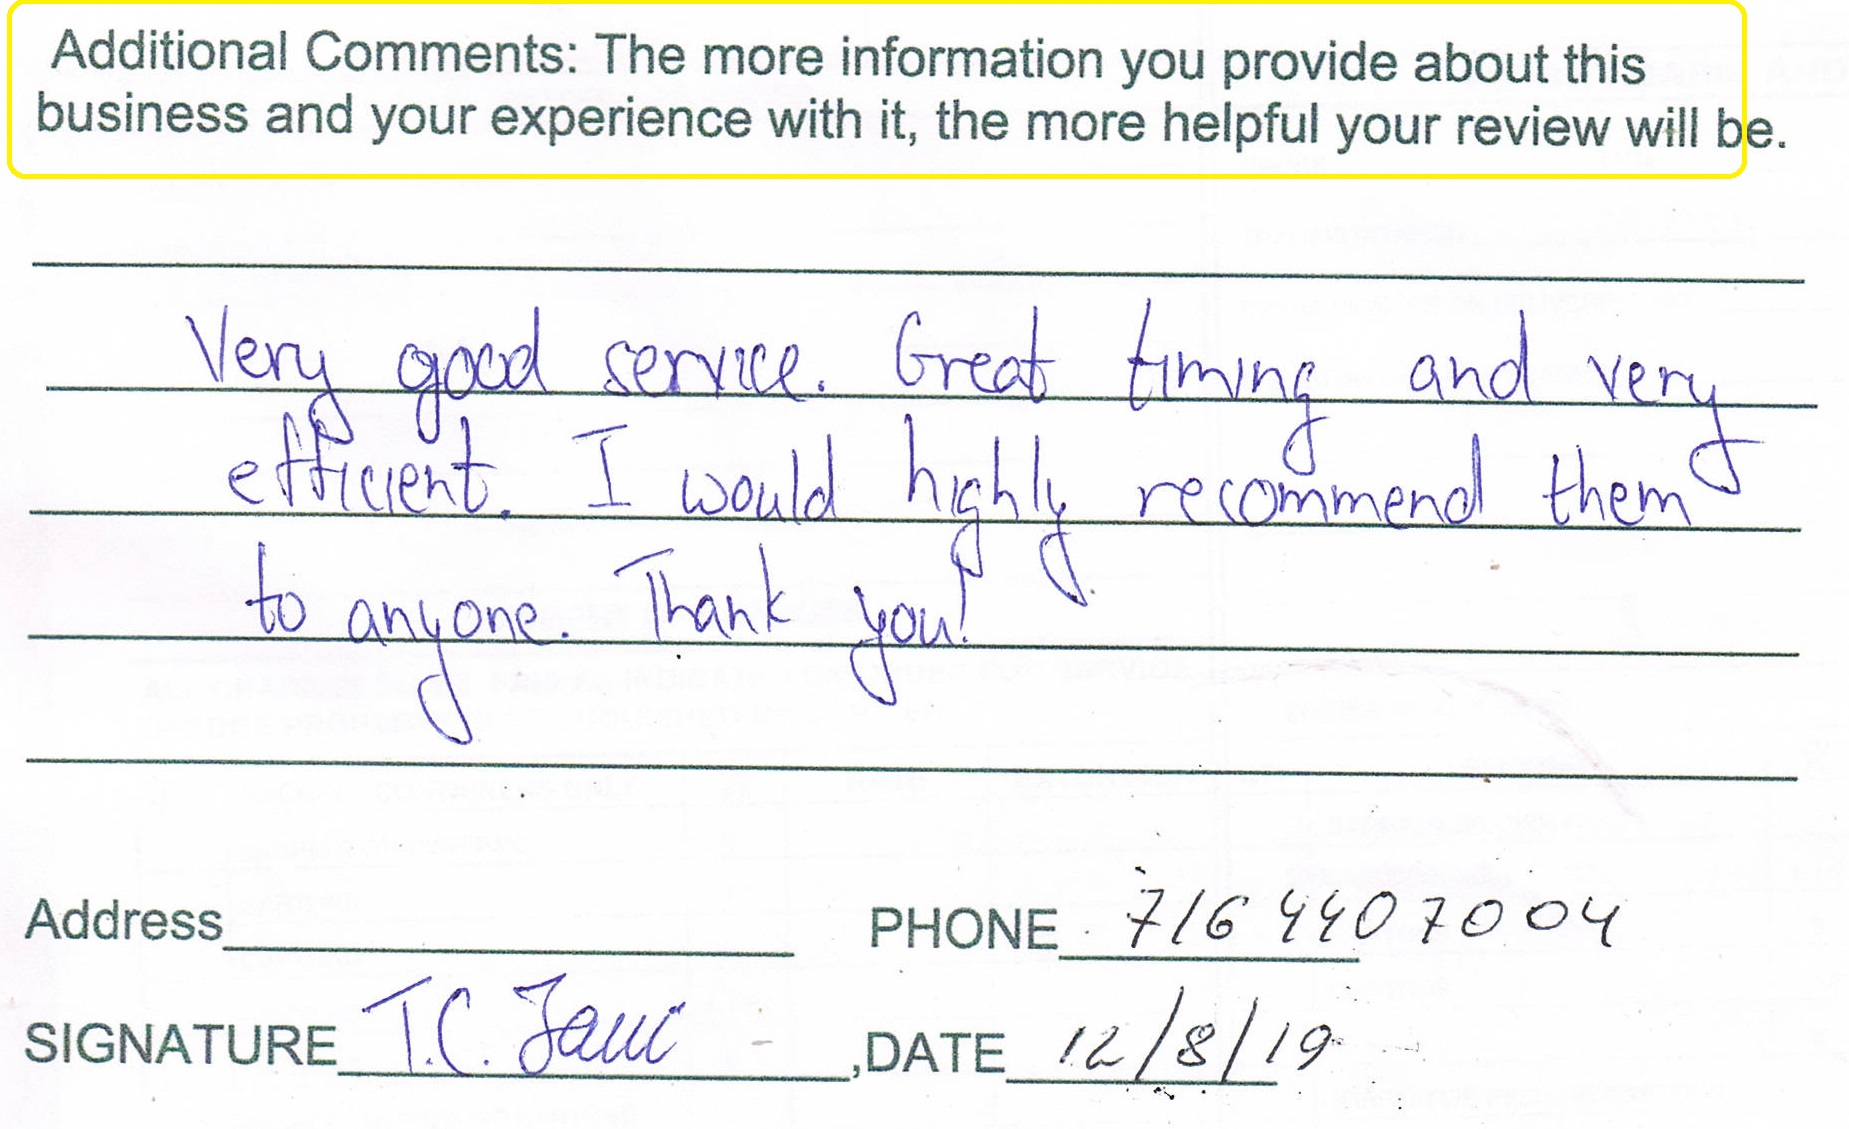 Additional Comments: The more information you provide about this
business and your experience with it, the more helpful your review will be.
Very good service. Great timing and very
efficient. I would highly recommend them
to anyone. Thank you!
Address PHONE 716 440 7004
SIGNATURE T.C. ,DATE 12/8/19